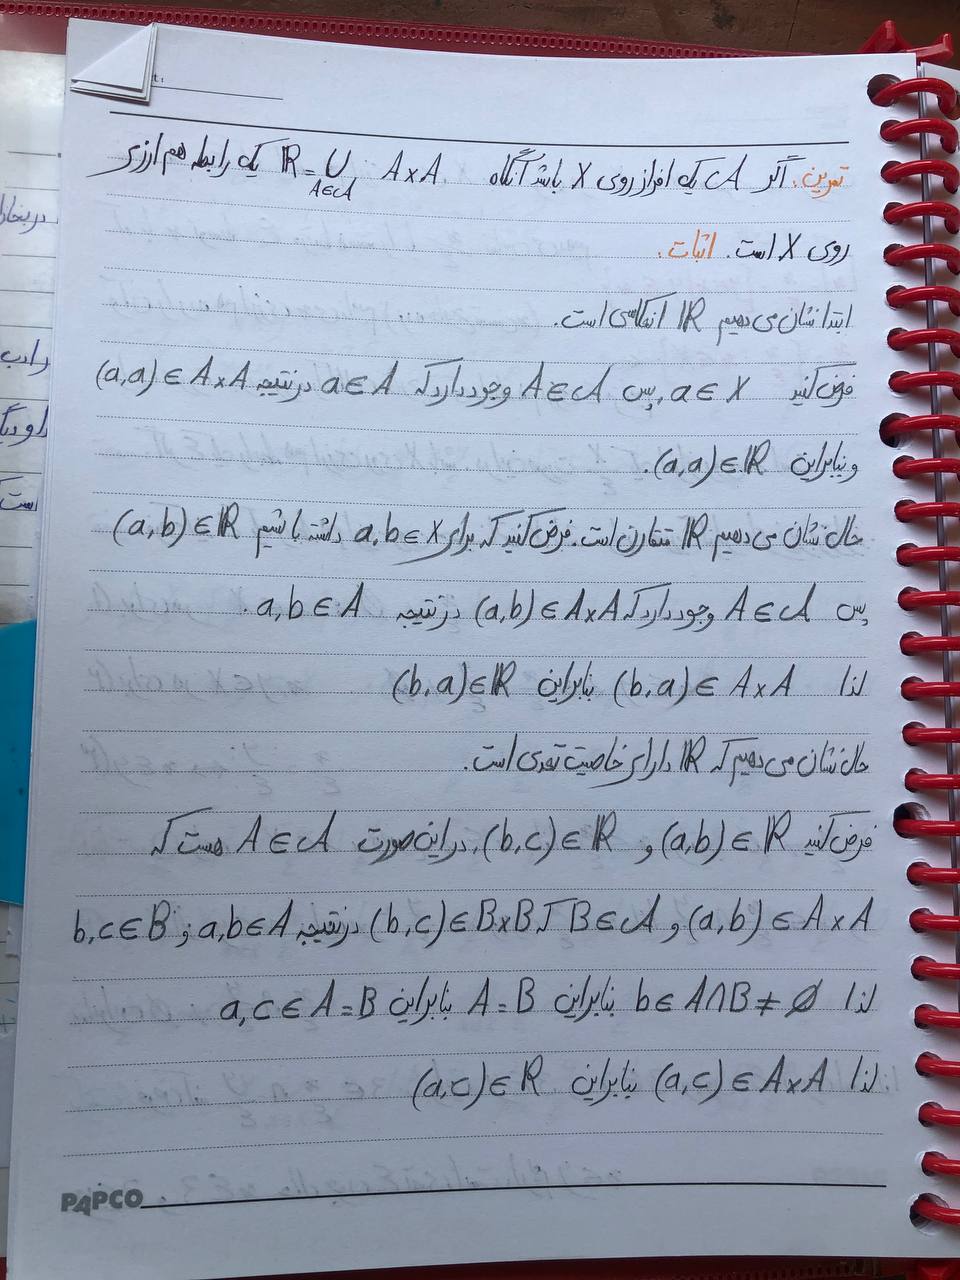 t:
تمرین: اگر 𝒜 یک افراز روی X باشد آنگاه ℝ = ∪_{A∈𝒜} A×A یک رابطه هم ارزی
روی X است. اثبات:
ابتدا نشان می دهیم ℝ انعکاسی است.
فرض کنید a ∈ X، پس A ∈ 𝒜 وجود دارد که a ∈ A در نتیجه (a,a) ∈ A×A
و بنابراین (a,a) ∈ ℝ.
حال نشان می دهیم ℝ متقارن است. فرض کنید که برای a,b ∈ X داشته باشیم (a,b) ∈ ℝ
پس A ∈ 𝒜 وجود دارد که (a,b) ∈ A×A در نتیجه a,b ∈ A.
لذا (b,a) ∈ A×A بنابراین (b,a) ∈ ℝ
حال نشان می دهیم که ℝ دارای خاصیت تعدی است.
فرض کنید (a,b) ∈ ℝ و (b,c) ∈ ℝ، در این صورت A ∈ 𝒜 هست که
(a,b) ∈ A×A و B ∈ 𝒜 که (b,c) ∈ B×B در نتیجه a,b ∈ A و b,c ∈ B
لذا b ∈ A∩B ≠ ∅ بنابراین A = B بنابراین a,c ∈ A = B
لذا (a,c) ∈ A×A بنابراین (a,c) ∈ ℝ
PAPCO